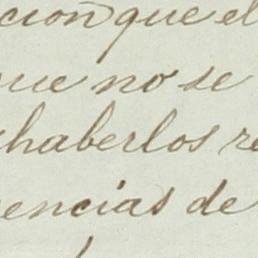 ción que el
que no se
haberlos re
encias de